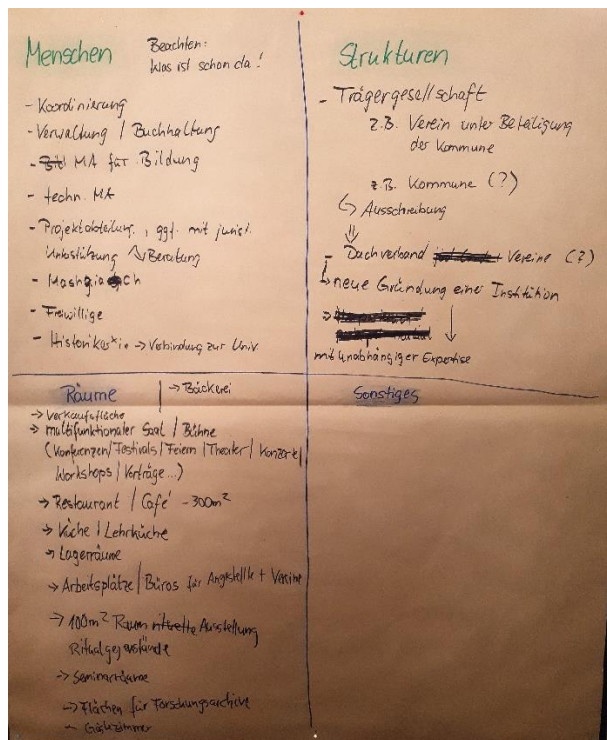 Menschen
Beachten:
Was ist schon da!
- Koordinierung
- Verwaltung | Buchhaltung
- MA für Bildung
- techn. MA
- Projektabteilung, ggf. mit jurist.
Unterstützung Beratung
- Mashgiach
- Freiwillige
- Historiker*in → Verbindung zur Univ.
Strukturen
- Trägergesellschaft
z.B. Verein unter Beteiligung
der Kommune
z.B. Kommune (?)
↳ Ausschreibung
⇓
- Dachverband Vereine (?)
↳ neue Gründung einer Institution
→
mit unabhängiger Expertise
Räume
→ Bäckerei
→ Verkaufsfläche
→ multifunktionaler Saal | Bühne
(Konferenzen/Festivals/Feiern/Theater/Konzerte/
Workshops/Vorträge...)
→ Restaurant / Café - 300m²
→ Küche | Lehrküche
→ Lagerräume
→ Arbeitsplätze | Büros für Angestellte + Vereine
→ 100m² Raum rituelle Ausstellung
Ritualgegenstände
→ Seminarräume
→ Flächen für Forschungsarchive
- Gästezimmer
Sonstiges